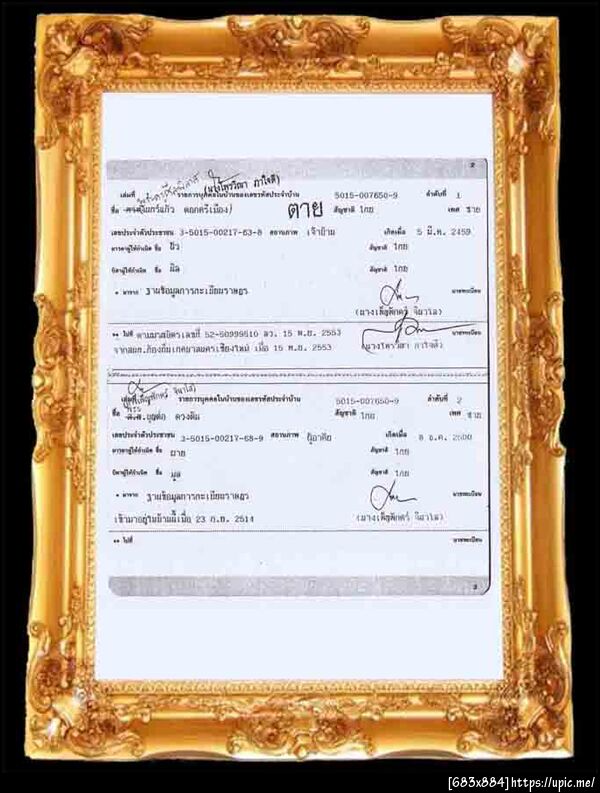 2
(นางไพรวีณา ภาใจดี)
เล่มที่ รายการบุคคลในบ้านของเลขรหัสประจำบ้าน 5015-007650-9 ลำดับที่ 1
ชื่อ ดอกศรีเมือง ตาย สัญชาติ ไทย เพศ ชาย
เลขประจำตัวประชาชน 3-5015-00217-63-8 สถานภาพ เจ้าบ้าน เกิดเมื่อ 5 มี.ค. 2459
มารดาผู้ให้กำเนิด ชื่อ บัว สัญชาติ ไทย
บิดาผู้ให้กำเนิด ชื่อ ผิล สัญชาติ ไทย
* มาจาก ฐานข้อมูลการทะเบียนราษฎร
นายทะเบียน
(นางเพ็ญพักตร์ จินาโล)
** ไปที่ ตามมรณบัตรเลขที่ 52-50999510 ลว. 15 พ.ย. 2553 นายทะเบียน
จากสนท.ท้องถิ่นเทศบาลนครเชียงใหม่ เมื่อ 15 พ.ย. 2553
(นางเพ็ญพักตร์ จินาโล)
เล่มที่ รายการบุคคลในบ้านของเลขรหัสประจำบ้าน 5015-007650-9 ลำดับที่ 2
ชื่อ บุญต่อ ดวงติ๊บ สัญชาติ ไทย เพศ ชาย
เลขประจำตัวประชาชน 3-5015-00217-68-9 สถานภาพ ผู้อาศัย เกิดเมื่อ 8 ธ.ค. 2500
มารดาผู้ให้กำเนิด ชื่อ ผาย สัญชาติ ไทย
บิดาผู้ให้กำเนิด ชื่อ มูล สัญชาติ ไทย
* มาจาก ฐานข้อมูลการทะเบียนราษฎร นายทะเบียน
เข้ามาอยู่ในบ้านนี้เมื่อ 23 ก.ย. 2514 (นางเพ็ญพักตร์ จินาโล)
** ไปที่ นายทะเบียน
3
[683x884]https://upic.me/